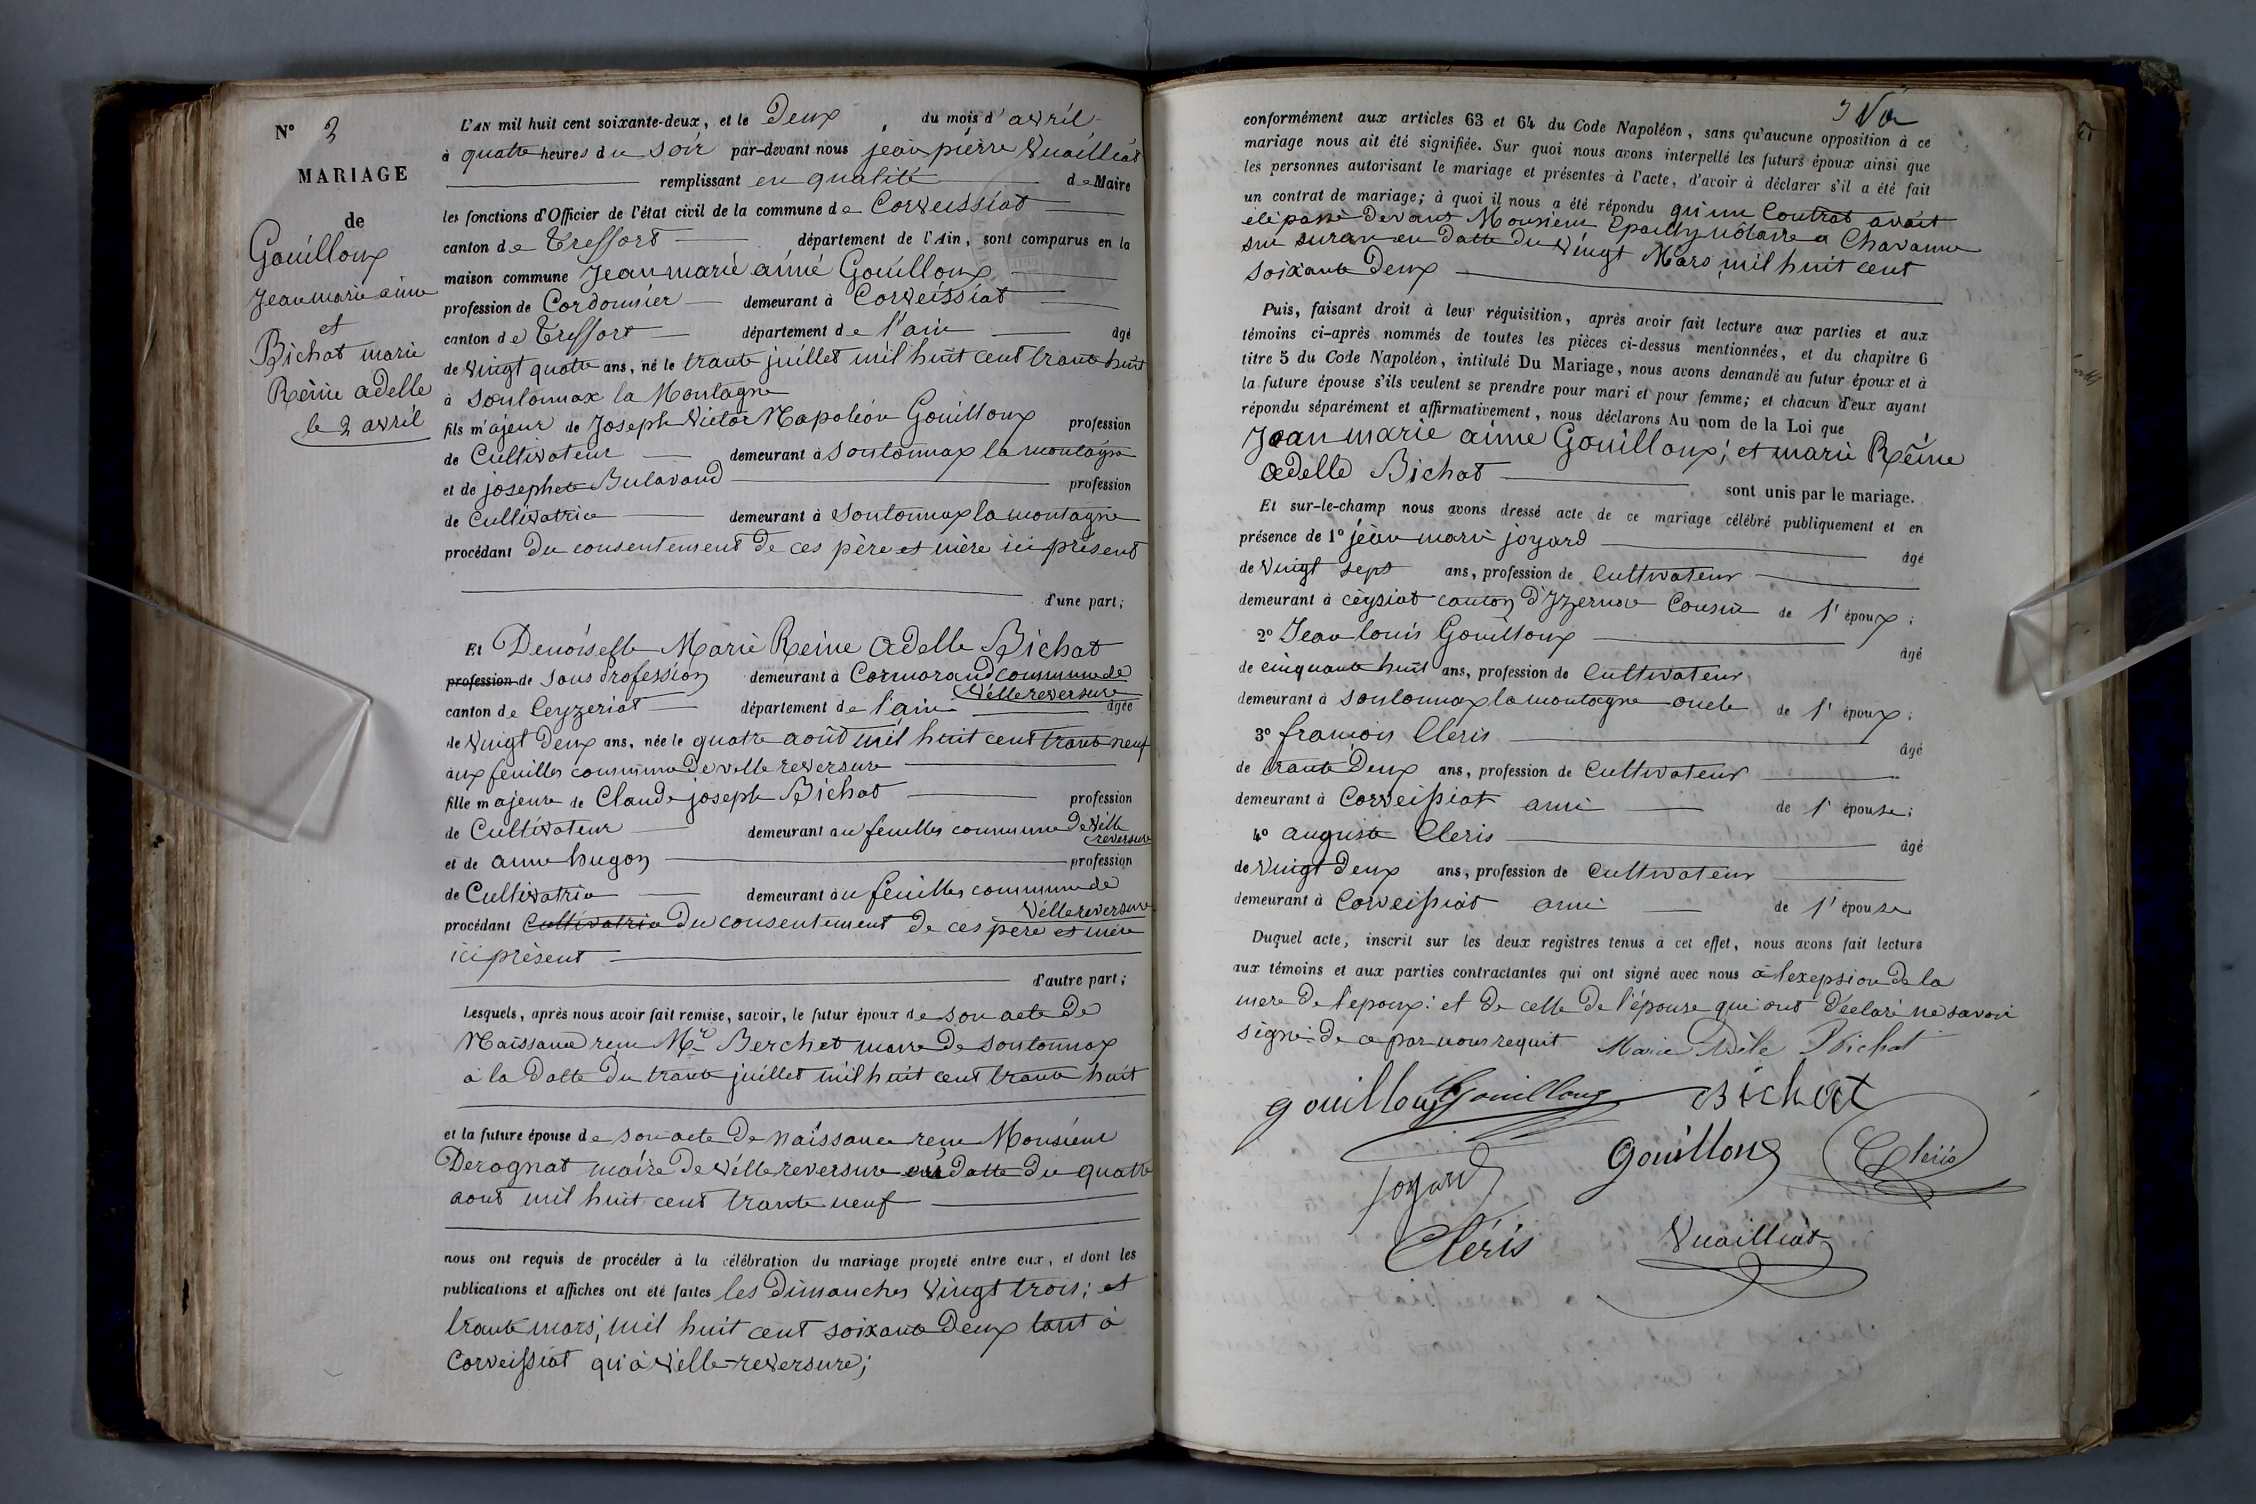 N° 2
MARIAGE
de
Gouilloux
Jean marie aimé
et
Bichat marie
Reine adelle
le 2 avril
L'AN mil huit cent soixante-deux, et le Deux, du mois d'avril
à quatre heures du Soir par-devant nous jean pierre Vuailliat
remplissant en qualité de Maire
les fonctions d'Officier de l'état civil de la commune de Corveissiat
canton de Treffort département de l'Ain, sont comparus en la
maison commune Jean marie aimé Gouilloux
profession de Cordonnier demeurant à Corveissiat
canton de Treffort département de l'ain âgé
de vingt quatre ans, né le trante juillet mil huit cent trante huit
à Sontonnax la Montagne
fils majeur de Joseph Victor Napoléon Gouilloux profession
de Cultivateur demeurant à Sontonnax la montagne
et de josephete Bulavand profession
de Cultivatrice demeurant à Sontonnax la montagne
procédant Du consentement de ces père et mère ici présent
d'une part;
Et Demoiselle Marie Reine adelle Bichat
profession de sans Profession demeurant à Cormorand commune de
Villereversure
canton de Ceyzeriat département de l'ain âgée
de vingt Deux ans, née le quatre août mil huit cent trante neuf
aux feuilles commune de velle reversure
fille majeure de Claude joseph Bichat profession
de Cultivateur demeurant au feuilles commune de Vélle
reversure
et de anne hugon profession
de Cultivatrice demeurant au feuilles commune de
Vélle reversure
procédant Cultivatrice Du consentement de ces père et mère
ici présent
d'autre part;
Lesquels, après nous avoir fait remise, savoir, le futur époux de son acte De
Naissance reçu Mr Berchet maire De Sontonnax
à la Datte Du trante juillet mil huit cent trante huit
et la future épouse de son acte De naissance reçu Monsieur
Derognat maire De Vélle reversure en Datte Du quatre
aout mil huit cent trante neuf
nous ont requis de procéder à la célébration du mariage projeté entre eux, et dont les
publications et affiches ont été faites les Dimanches vingt trois; et
trante mars, mil huit cent soixante Deux tant à
Corveissiat qu'à Vélle-reversure;
conformément aux articles 63 et 64 du Code Napoléon, sans qu'aucune opposition à ce
mariage nous ait été signifiée. Sur quoi nous avons interpellé les futurs époux ainsi que
les personnes autorisant le mariage et présentes à l'acte, d'avoir à déclarer s'il a été fait
un contrat de mariage; à quoi il nous a été répondu qu'un Contrat avait
été passé devant Monsieur Epailly notaire a Chavanne
sur suran en Datte du vingt Mars mil huit cent
soixante Deux
Puis, faisant droit à leur réquisition, après avoir fait lecture aux parties et aux
témoins ci-après nommés de toutes les pièces ci-dessus mentionnées, et du chapitre 6
titre 5 du Code Napoléon, intitulé Du Mariage, nous avons demandé au futur époux et à
la future épouse s'ils veulent se prendre pour mari et pour femme; et chacun d'eux ayant
répondu séparément et affirmativement, nous déclarons Au nom de la Loi que
Jean marie aimé Gouilloux; et marie Reine
adelle Bichat sont unis par le mariage.
Et sur-le-champ nous avons dressé acte de ce mariage célébré publiquement et en
présence de 1° jean marie joyard âgé
de vingt sept ans, profession de Cultivateur
demeurant à ceysiat canton d'Izernore Cousin de l'époux;
2° Jean louis Gouilloux âgé
de cinquante huit ans, profession de Cultivateur
demeurant à Sontonnax la montagne oncle de l'époux;
3° francois Cleris âgé
de trante Deux ans, profession de Cultivateur
demeurant à Corveissiat ami de l'épouse;
4° auguste Cleris âgé
de vingt Deux ans, profession de Cultivateur
demeurant à Corveissiat ami de l'épouse
Duquel acte, inscrit sur les deux registres tenus à cet effet, nous avons fait lecture
aux témoins et aux parties contractantes qui ont signé avec nous à l'exepsion De la
mere De l'epoux: et De celle De l'épouse qui ont Déclaré ne savoir
signé: de ce par nous requit Marie Adèle Bichat
gouilloux Gouilloux Bichat
joyard Gouilloux Cleris
Cléris Vuailliat